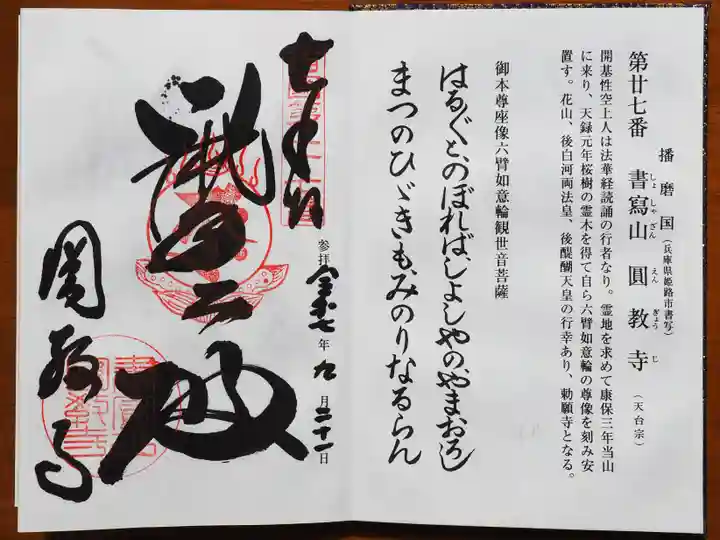 播磨国(兵庫県姫路市書写)
第廿七番 書寫山 圓教寺 (天台宗)
しょしゃざん えんぎょうじ
開基性空上人は法華経読誦の行者なり。霊地を求めて康保三年当山
に来り、天録元年桜樹の霊木を得て自ら六臂如意輪の尊像を刻み安
置す。花山、後白河両法皇、後醍醐天皇の行幸あり、勅願寺となる。
御本尊座像六臂如意輪観世音菩薩
はるばると、のぼればしよしやの、やまおろし
まつのひゞきも、みのりなるらん
参拝 年 九月二十一日
圓教寺